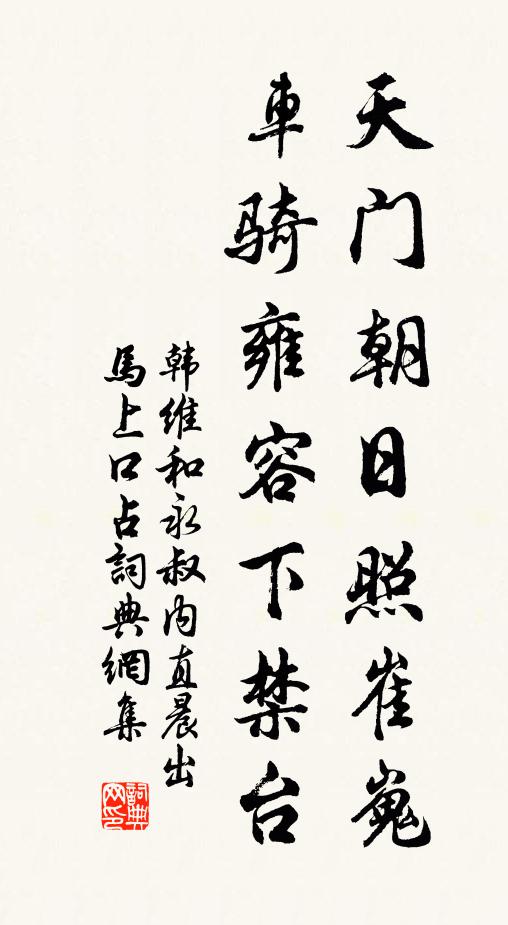 天门朝日照崔嵬
車骑雍容下禁台
韩维和永叔内直晨出
馬上口占詞典網集
詞典
网印